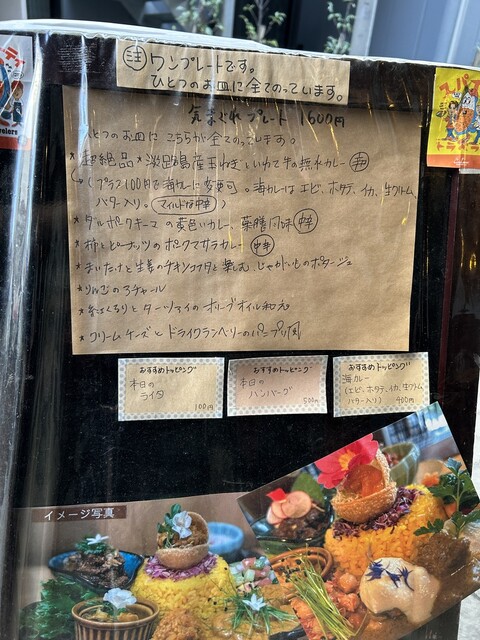 注 ワンプレートです。
ひとつのお皿に全てのっています。
気まぐれプレート 1600円
ひとつのお皿にこちらが全てのっています。
*超絶品*淡路島産玉ねぎといわて牛の無水カレー
(プラス100円で海カレーに変更可。海カレーはエビ、ホタテ、イカ、生クリーム、
バター入り。マイルド中辛)
*ダルポークキーマの黄色いカレー、薬膳風味 中辛
*柿とピーナッツのポークマサラカレー 中辛
*まいたけと生姜のチキンコフタと楽しむ、じゃがいものポタージュ
*りんごのアチャール
*紅くるりとターツァイのオリーブオイル和え
*クリームチーズとドライクランベリーのパニプリ風
おすすめトッピング
本日の
ライタ
100円
おすすめトッピング
本日の
ハンバーグ
500円
おすすめトッピング
海カレー
(エビ、ホタテ、イカ、生クリーム、
バター入り) 400円
イメージ写真